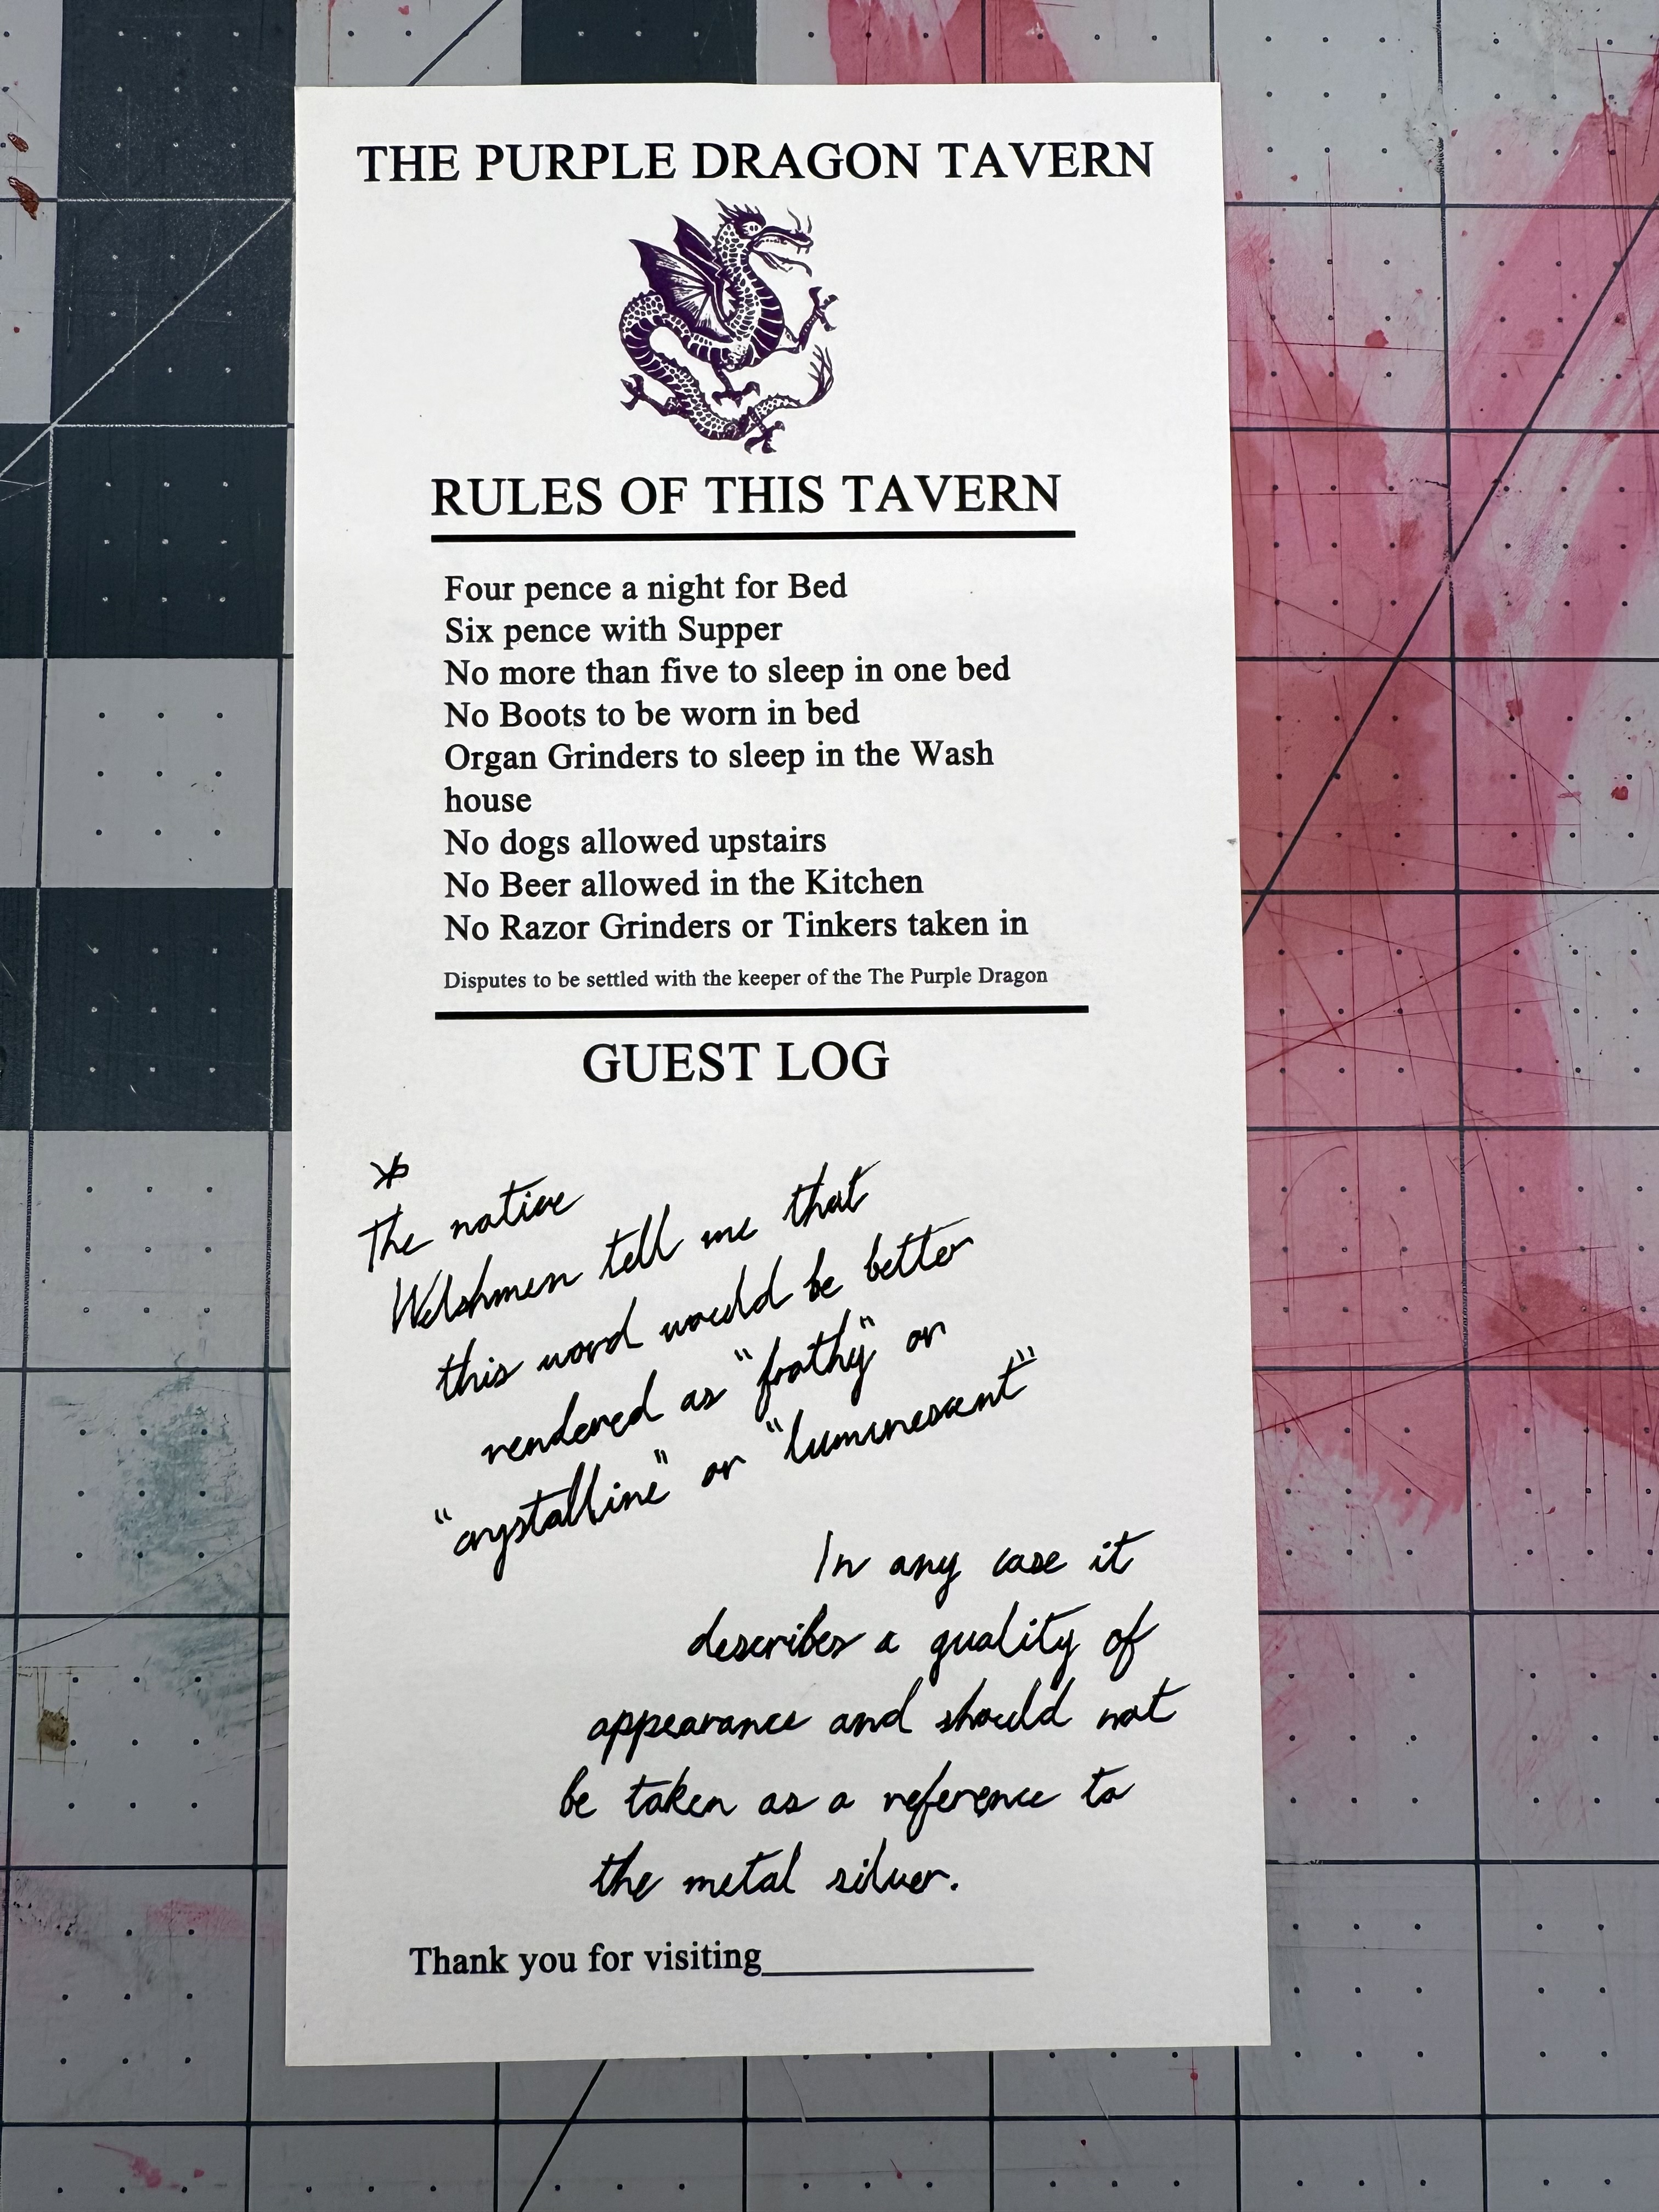 THE PURPLE DRAGON TAVERN
RULES OF THIS TAVERN
Four pence a night for Bed
Six pence with Supper
No more than five to sleep in one bed
No Boots to be worn in bed
Organ Grinders to sleep in the Wash
house
No dogs allowed upstairs
No Beer allowed in the Kitchen
No Razor Grinders or Tinkers taken in
Disputes to be settled with the keeper of the The Purple Dragon
GUEST LOG
*
The native
Welshmen tell me that
this word would be better
rendered as "frothy" or
"crystalline" or "luminescent"
In any case it
describes a quality of
appearance and should not
be taken as a reference to
the metal silver.
Thank you for visiting______________